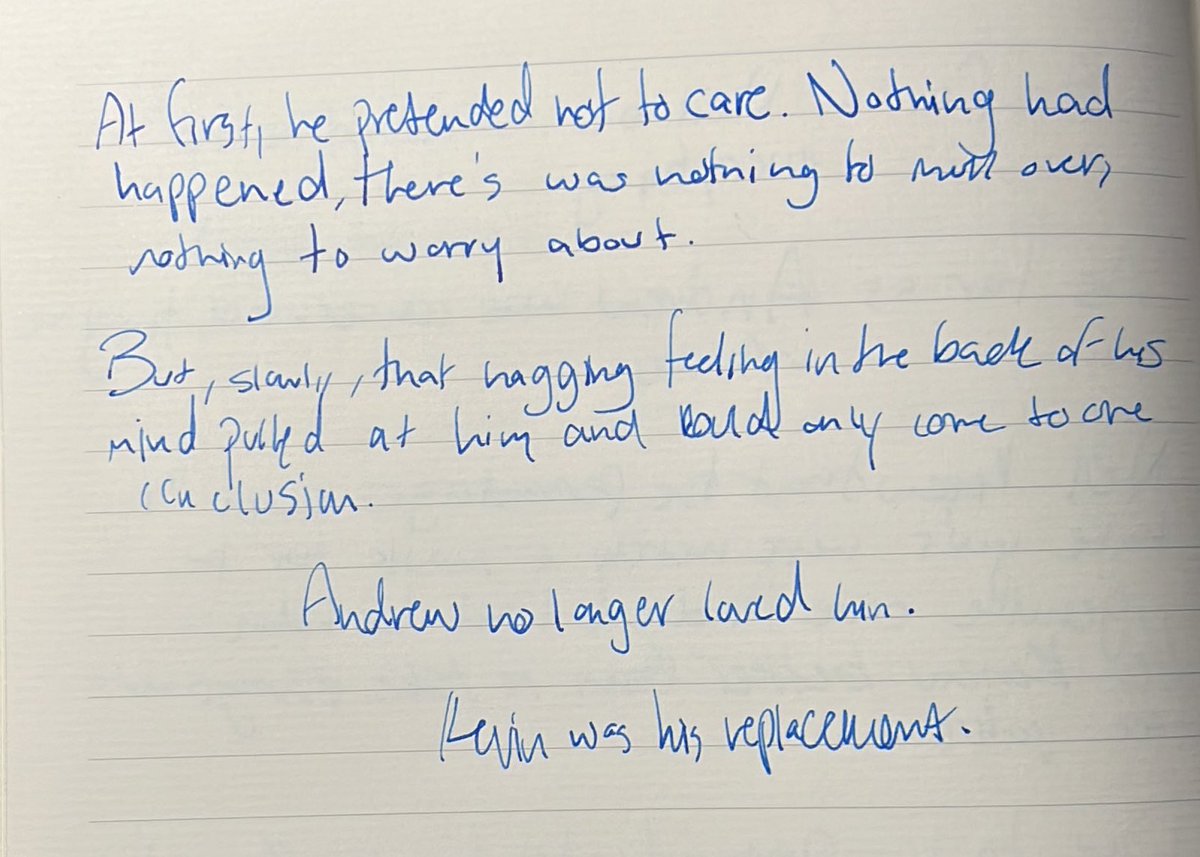 At first, he pretended not to care. Nothing had
happened, there's was nothing to mull over,
nothing to worry about.
But, slowly, that nagging feeling in the back of his
mind pulled at him and could only come to one
conclusion.
Andrew no longer loved him.
Kevin was his replacement.